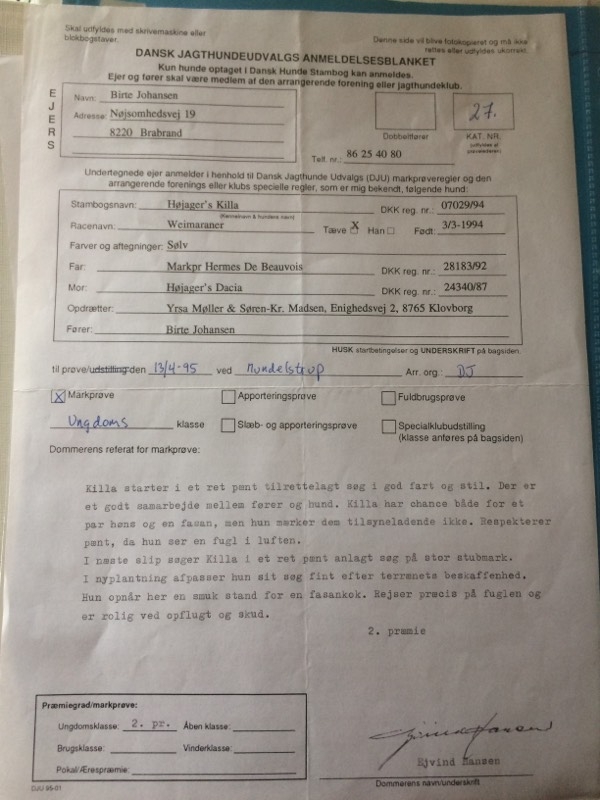 Skal udfyldes med skrivemaskine eller
blokbogstaver.
Denne side vil blive fotokopieret og må ikke
rettes eller udfyldes ukorrekt.
DANSK JAGTHUNDEUDVALGS ANMELDELSESBLANKET
Kun hunde optaget i Dansk Hunde Stambog kan anmeldes.
Ejer og fører skal være medlem af den arrangerende forening eller jagthundeklub.
EJERS
Navn: Birte Johansen
Adresse: Nøjsomhedsvej 19
8220 Brabrand
Dobbeltfører
27.
KAT. NR.
(udfyldes af prøvelederen)
Telf. nr.: 86 25 40 80
Undertegnede ejer anmelder i henhold til Dansk Jagthunde Udvalgs (DJU) markprøveregler og den
arrangerende forenings eller klubs specielle regler, som er mig bekendt, følgende hund:
Stambogsnavn: Højager's Killa DKK reg. nr.: 07029/94
(Kennelnavn & hundens navn)
Racenavn: Weimaraner Tæve X Han Født: 3/3-1994
Farver og aftegninger: Sølv
Far: Markpr Hermes De Beauvois DKK reg. nr.: 28183/92
Mor: Højager's Dacia DKK reg. nr.: 24340/87
Opdrætter: Yrsa Møller & Søren-Kr. Madsen, Enighedsvej 2, 8765 Klovborg
Fører: Birte Johansen
HUSK startbetingelser og UNDERSKRIFT på bagsiden.
til prøve/udstilling den 13/4-95 ved Mundelstrup Arr. org.: DJ
X Markprøve Apporteringsprøve Fuldbrugsprøve
Ungdoms klasse Slæb- og apporteringsprøve Specialklubudstilling
(klasse anføres på bagsiden)
Dommerens referat for markprøve:
Killa starter i et ret pænt tilrettelagt søg i god fart og stil. Der er
et godt samarbejde mellem fører og hund. Killa har chance både for et
par høns og en fasan, men hun mærker dem tilsyneladende ikke. Respekterer
pænt, da hun ser en fugl i luften.
I næste slip søger Killa i et ret pænt anlagt søg på stor stubmark.
I nyplantning afpasser hun sit søg fint efter terrænets beskaffenhed.
Hun opnår her en smuk stand for en fasankok. Rejser præcis på fuglen og
er rolig ved opflugt og skud.
2. præmie
Præmiegrad/markprøve:
Ungdomsklasse: 2. pr. Åben klasse:
Brugsklasse: Vinderklasse:
Pokal/Ærespræmie:
Ejvind Hansen
Ejvind Hansen
Dommerens navn/underskrift
DJU 95-01